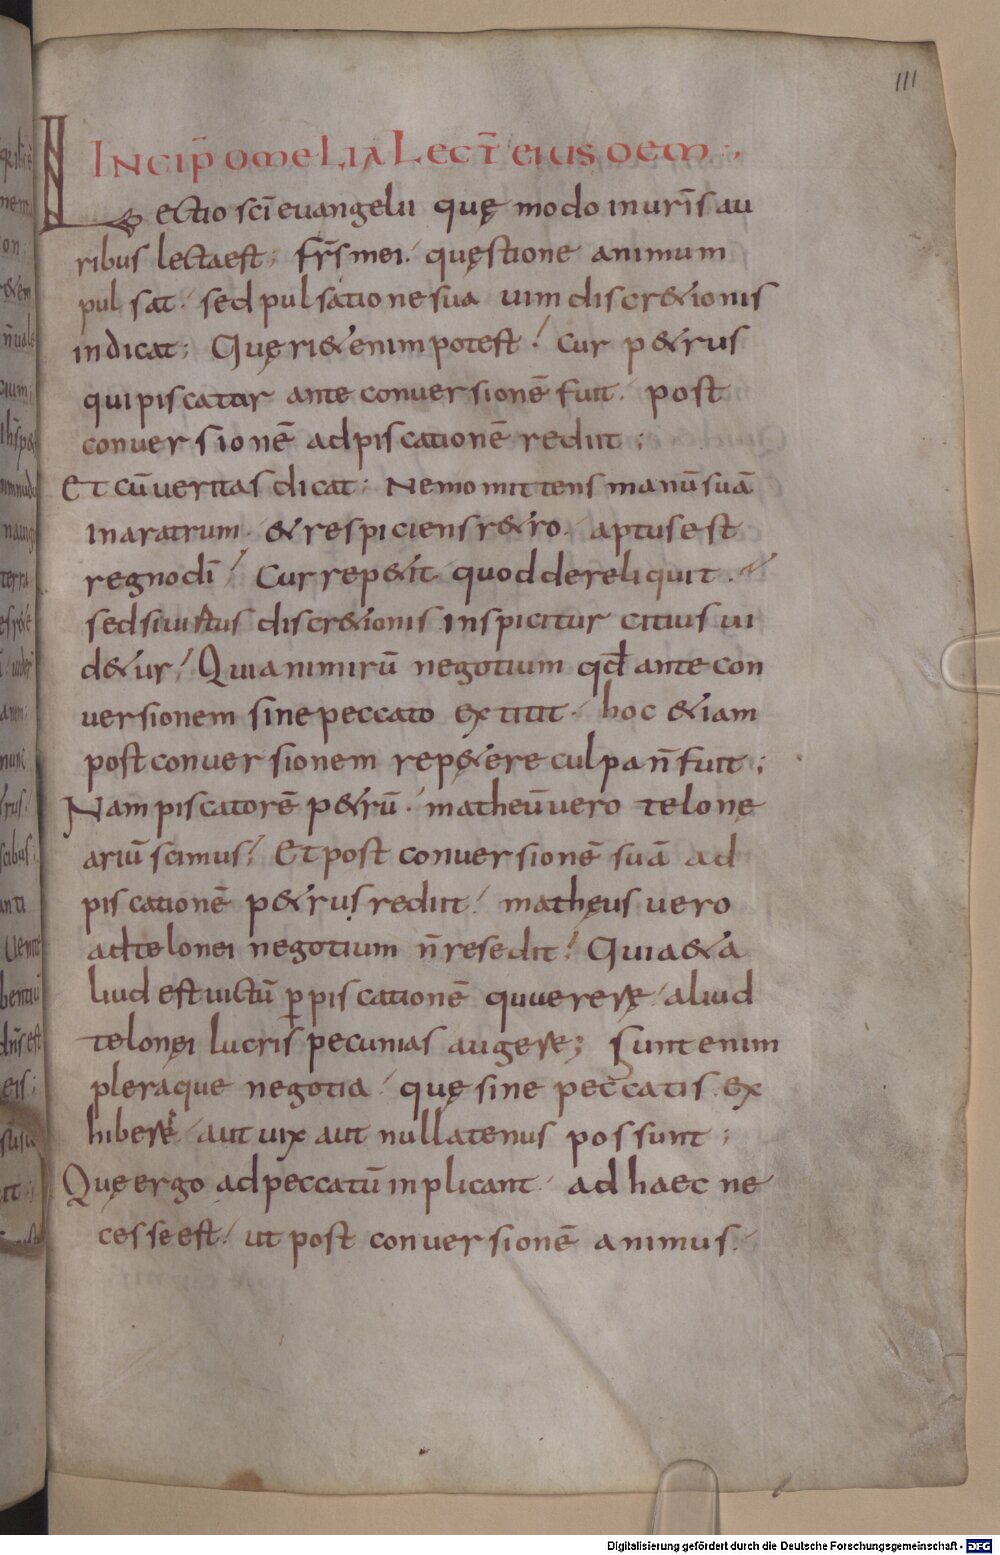 111
INCIP̄ OMELIA LECT̄ EIUSDEM :,
Lectio sc̄i euangelii quę modo in ur̄is au
ribus lecta est; fr̄s mei. quęstione animum
pulsat. sed pulsatione sua uim discr&ionis
indicat; Quęri& enim potest! Cur p&rus
qui piscatur ante conuersionē fuit. post
conuersionē ad piscationē rediit;
Et cū ueritas dicat; Nemo mittens manū suā
in aratrum & respiciens r&ro. aptus est
regno dī! Cur rep&iit quod dereliquit.
sed si uirtus discr&ionis inspicitur citius ui
d&ur! Quia nimirū negotium qd̄ ante con
uersionem sine peccato extitit. hoc &iam
post conuersionem rep&ere culpa n̄ fuit;
Nam piscatorē p&rū. matheū uero telone
ariū scimus! Et post conuersionē suā ad
piscationē p&rus rediit! matheus uero
ad telonei negotium n̄ resedit! Quia & a
liud est uictū p piscationē quuerere. aliud
telonei lucris pecunias augere; Sunt enim
pleraque negotia. quę sine peccatis ex
hiberi aut uix aut nullatenus possunt;
Quę ergo ad peccatū inplicant. ad haec ne
cesse est! ut post conuersionē animus.
Digitalisierung gefördert durch die Deutsche Forschungsgemeinschaft - DFG